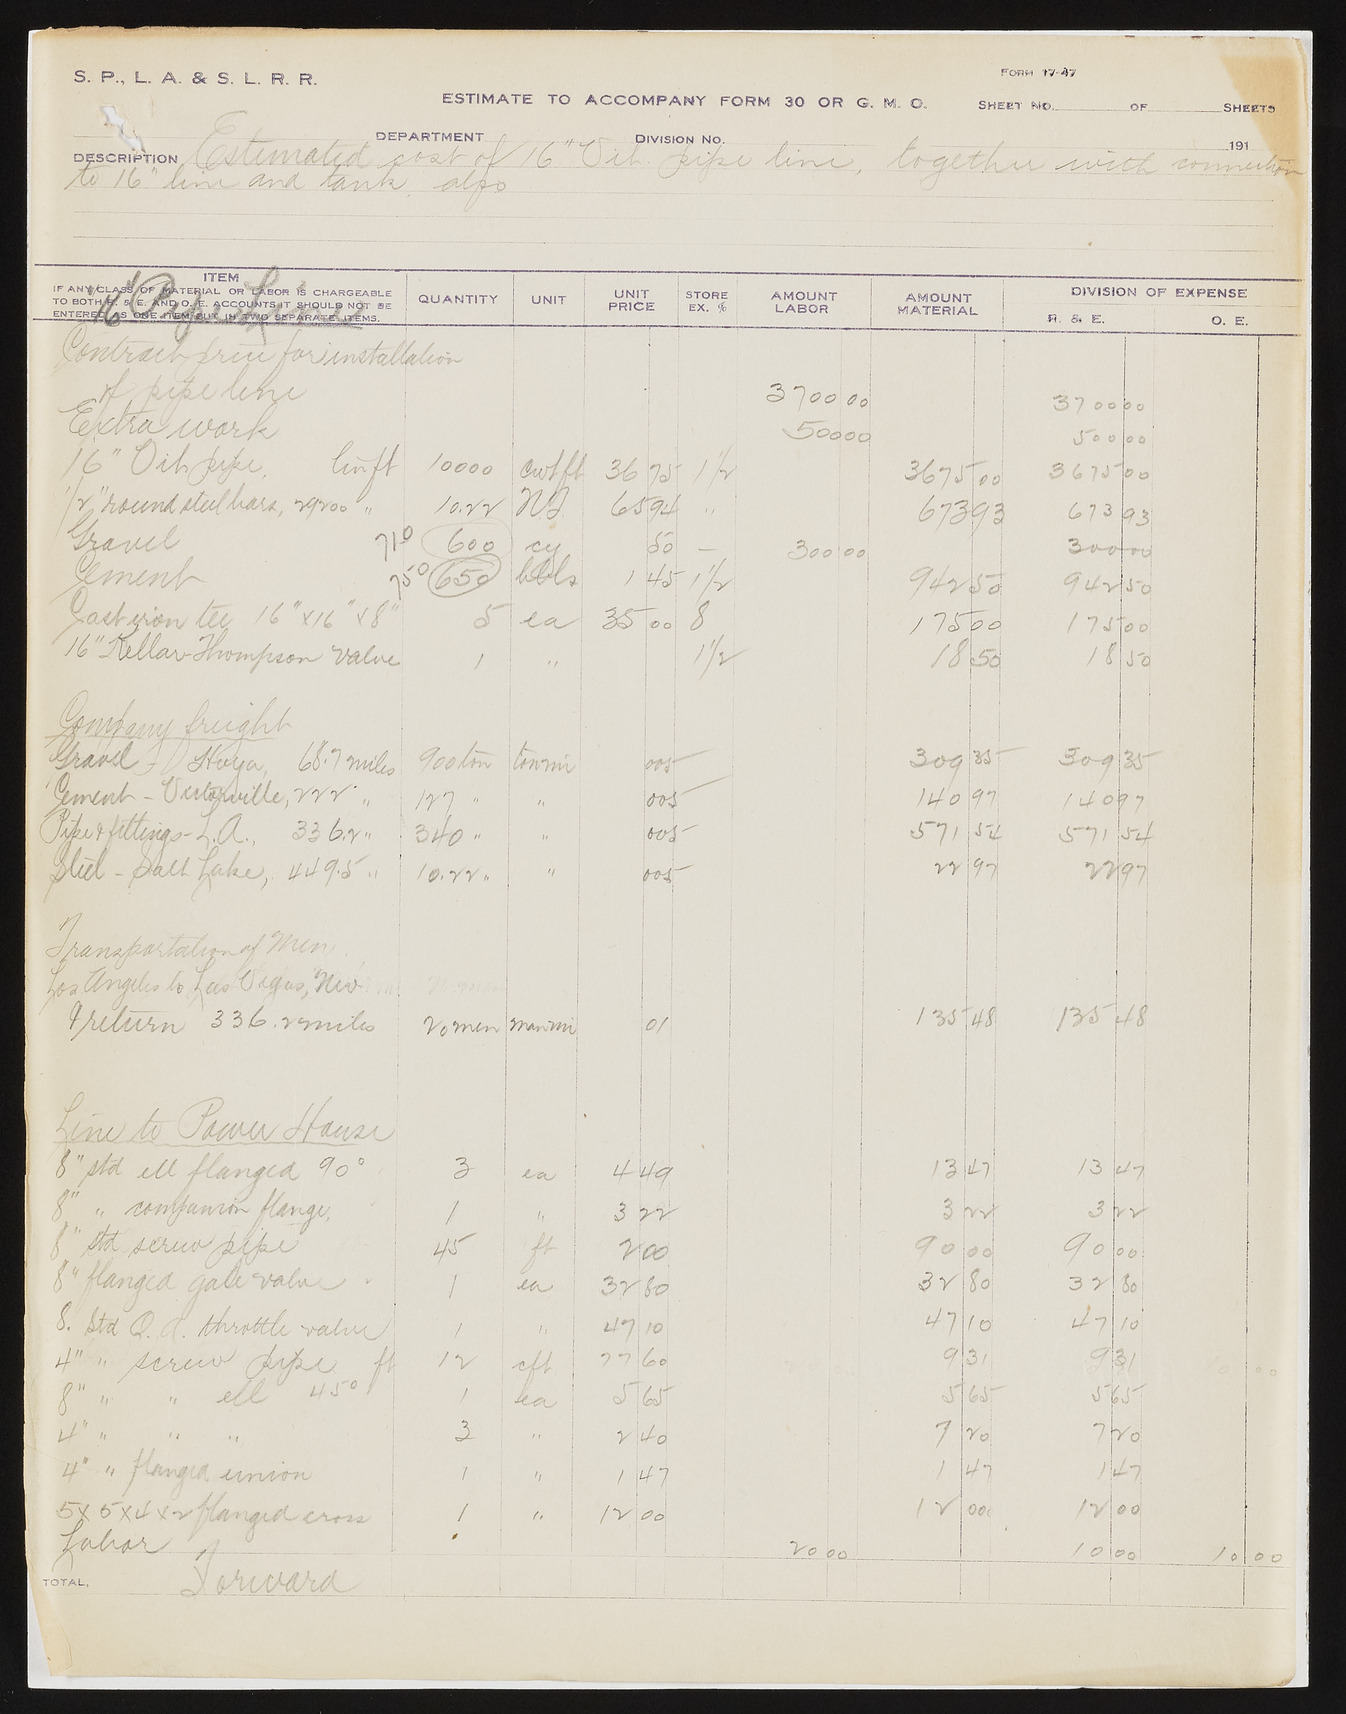 S. P., L. A. & S. L. R. R.
FORM 17-47
ESTIMATE TO ACCOMPANY FORM 30 OR G. M. O. SHEET NO. OF SHEETS
DEPARTMENT DIVISION NO. 191
DESCRIPTION Estimated cost of 16" Oil pipe line, together with connection
to 16" line and tank, also
ITEM
IF ANY CLASS OF MATERIAL OR LABOR IS CHARGEABLE
TO BOTH R. & E. AND O. E. ACCOUNTS IT SHOULD NOT BE
ENTERED AS ONE ITEM BUT IN TWO SEPARATE ITEMS.
QUANTITY UNIT UNIT PRICE STORE EX. % AMOUNT LABOR AMOUNT MATERIAL DIVISION OF EXPENSE
R. & E. O. E.
16" Pipe Line
Contract price for installation
of pipe line 3700 00 3700 00
Extra work 500 00 500 00
16" Oil pipe, lin ft 10000 cwt ft 36 75 1 1/2 3675 00 3675 00
1/2" round steel bars, 29200 " 10.22 N.T. 65 94 " 673 93 673 93
Gravel 710 600 cy 50 — 300 00 300 00
Cement 750 650 bbls 1 45 1 1/2 942 50 942 50
Cast iron tee 16"x16"x8" 5 ea 35 00 8 175 00 175 00
16" Kellar-Thompson valve 1 " 1 1/2 18 50 18 50
Company freight
Gravel - Hoya, 68.7 miles 900 ton ton mi 005 309 35 309 35
Cement - Victorville, 222 " 127 " " 005 140 97 140 97
Pipe & fittings - L.A., 336.2 " 340 " " 005 571 54 571 54
Steel - Salt Lake, 449.5 " 10.22 " " 005 22 97 22 97
Transportation of Men
Los Angeles to Las Vegas, Nev
& return 336.2 miles 20 men man mi 01 135 48 135 48
Line to Power House
8" std ell flanged 90° 3 ea 4 49 13 47 13 47
8" " companion flange, 1 " 3 22 3 22 3 22
8" std screw pipe 45 ft 2 00 90 00 90 00
8" flanged gate valve 1 ea 32 80 32 80 32 80
8. Std Q. A. throttle valve 1 " 47 10 47 10 47 10
4" " screw pipe ft 12 cft 77 60 9 31 9 31
8" " " ell 45° 1 ea 5 65 5 65 5 65
4" " " " 3 " 2 40 7 20 7 20
4" " flanged union 1 " 1 47 1 47 1 47
5x5x4x2 flanged cross 1 " 12 00 12 00 12 00
Labor 20 00 10 00 10 00
TOTAL, Forward